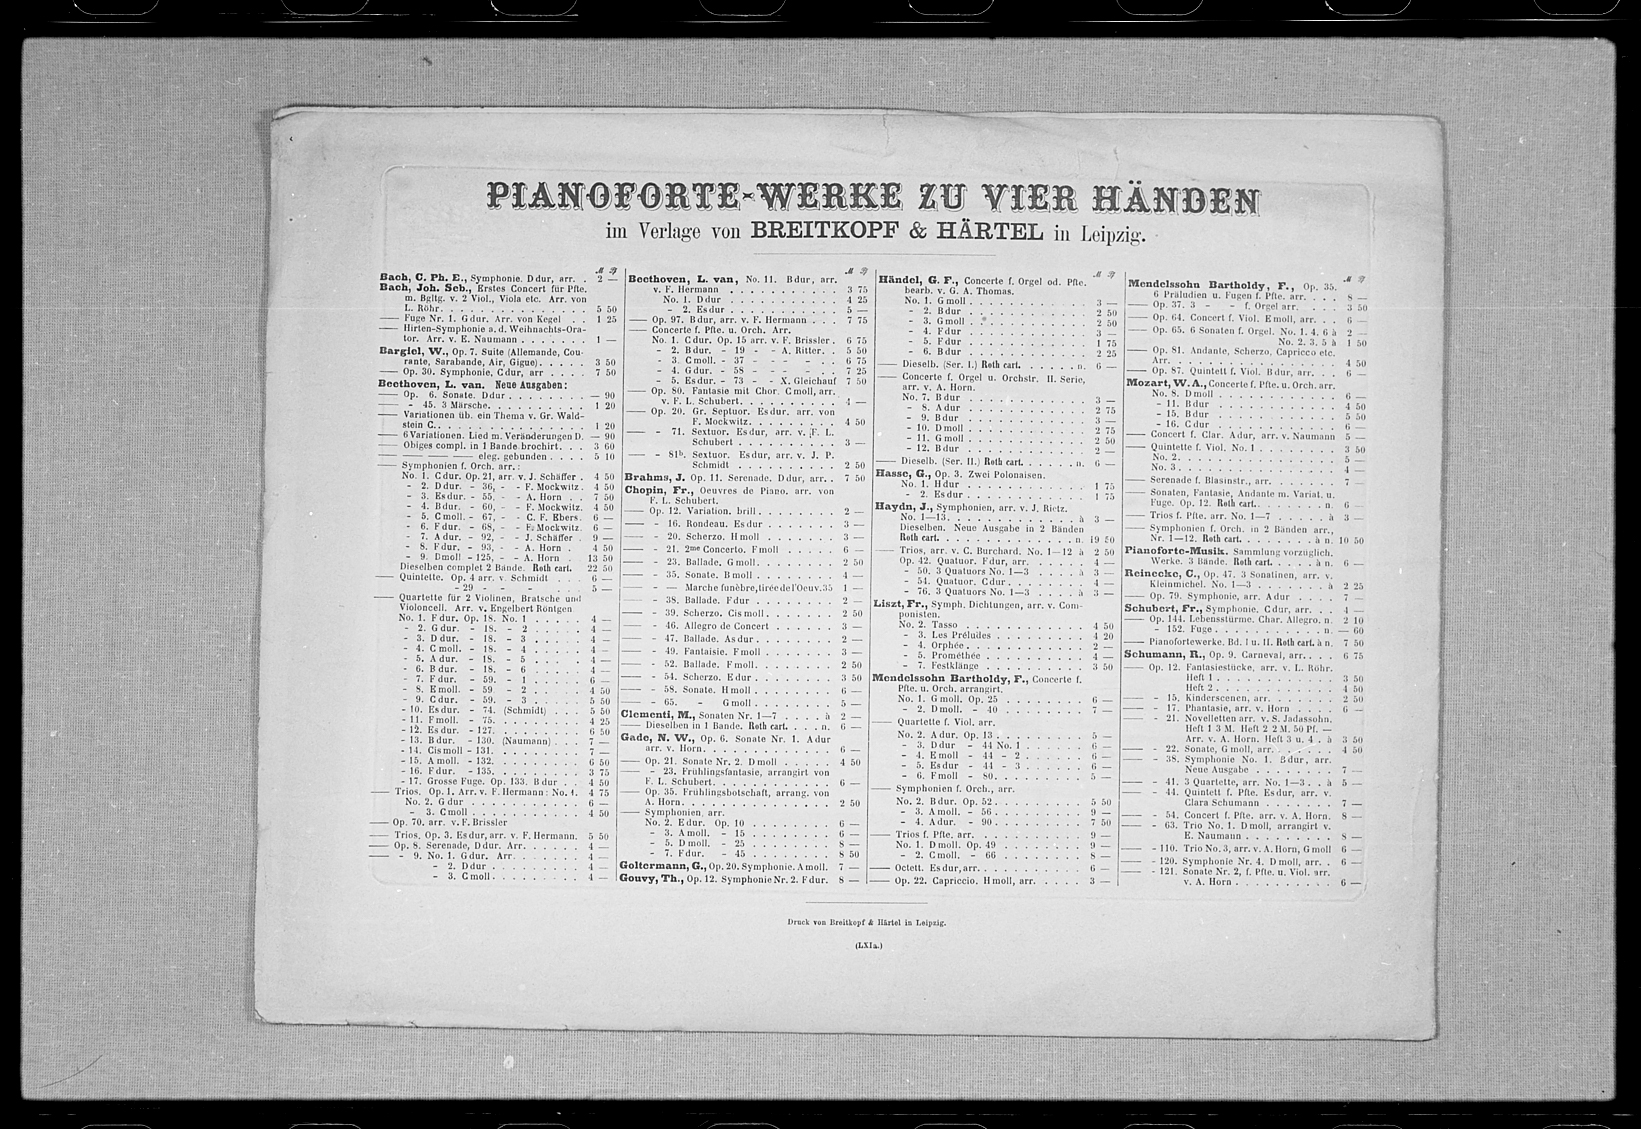 PIANOFORTE-WERKE ZU VIER HÄNDEN
im Verlage von BREITKOPF & HÄRTEL in Leipzig.
Bach, C. Ph. E., Symphonie. D dur, arr. . 2 —
Bach, Joh. Seb., Erstes Concert für Pfte.
m. Bgltg. v. 2 Viol., Viola etc. Arr. von
L. Röhr. . . . . . . . . . . . . 5 50
— Fuge Nr. 1. G dur. Arr. von Kegel . . 1 25
— Hirten-Symphonie a. d. Weihnachts-Ora-
tor. Arr. v. E. Naumann . . . . . . . 1 —
Bargiel, W., Op. 7. Suite (Allemande, Cou-
rante, Sarabande, Air, Gigue). . . . . 3 50
— Op. 30. Symphonie, C dur, arr . . . . 7 50
Beethoven, L. van. Neue Ausgaben:
— Op. 6. Sonate. D dur . . . . . . . . — 90
— - 45. 3 Märsche. . . . . . . . . . 1 20
— Variationen üb. ein Thema v. Gr. Wald-
stein C. . . . . . . . . . . . . . 1 20
— 6 Variationen. Lied m. Veränderungen D. — 90
— Obiges compl. in 1 Bande brochirt. . . 3 60
— — — — eleg. gebunden . . . . 5 10
— Symphonien f. Orch. arr.:
No. 1. C dur. Op. 21, arr. v. J. Schäffer . 4 50
- 2. D dur. - 36, - - F. Mockwitz . 4 50
- 3. Es dur. - 55, - - A. Horn . . 7 50
- 4. B dur. - 60, - - F. Mockwitz. 4 50
- 5. C moll. - 67, - - C. F. Ebers. 6 —
- 6. F dur. - 68, - - F. Mockwitz. 6 —
- 7. A dur. - 92, - - J. Schäffer . 9 —
- 8. F dur. - 93, - - A. Horn . 4 50
- 9. D moll - 125, - - A. Horn . 13 50
Dieselben complet 2 Bände. Roth cart. 22 50
— Quintette. Op. 4 arr. v. Schmidt . . . 6 —
- 29 - - - . . . 5 —
— Quartette für 2 Violinen, Bratsche und
Violoncell. Arr. v. Engelbert Röntgen
No. 1. F dur. Op. 18. No. 1 . . . . . 4 —
- 2. G dur. - 18. - 2 . . . . . 4 —
- 3. D dur. - 18. - 3 . . . . . 4 —
- 4. C moll. - 18. - 4 . . . . . 4 —
- 5. A dur. - 18. - 5 . . . . . 4 —
- 6. B dur. - 18. - 6 . . . . . 4 —
- 7. F dur. - 59. - 1 . . . . . 6 —
- 8. E moll. - 59. - 2 . . . . . 4 50
- 9. C dur. - 59. - 3 . . . . . 5 50
- 10. Es dur. - 74. (Schmidt) . . . 5 50
- 11. F moll. - 75. . . . . . . . . 4 25
- 12. Es dur. - 127. . . . . . . . 6 50
- 13. B dur. - 130. (Naumann) . . . 7 —
- 14. Cis moll - 131. . . . . . . . 7 —
- 15. A moll. - 132. . . . . . . . 6 50
- 16. F dur. - 135. . . . . . . . 3 75
- 17. Grosse Fuge. Op. 133. B dur . . 4 50
— Trios. Op. 1. Arr. v. F. Hermann: No. 1. 4 75
No. 2. G dur . . . . . . . . . . 6 —
- 3. C moll . . . . . . . . . . 4 50
— Op. 70. arr. v. F. Brissler
— Trios, Op. 3. Es dur, arr. v. F. Hermann. 5 50
— Op. 8. Serenade, D dur. Arr. . . . . . 4 —
— - 9. No. 1. G dur. Arr. . . . . . . 4 —
- 2. D dur . . . . . . . . 4 —
- 3. C moll . . . . . . . . 4 —
Beethoven, L. van, No. 11. B dur, arr.
v. F. Hermann . . . . . . . . . . 3 75
No. 1. D dur . . . . . . . . . . . 4 25
- 2. Es dur . . . . . . . . . . 5 —
— Op. 97. B dur, arr. v. F. Hermann . . . 7 75
— Concerte f. Pfte. u. Orch. Arr.
No. 1. C dur. Op. 15 arr. v. F. Brissler . 6 75
- 2. B dur. - 19 - - A. Ritter. . 5 50
- 3. C moll. - 37 - - - - . . 6 75
- 4. G dur. - 58 - - - - . . 7 25
- 5. Es dur. - 73 - - X. Gleichauf 7 50
— Op. 80. Fantasie mit Chor. C moll, arr.
v. F. L. Schubert. . . . . . . . . . 4 —
— Op. 20. Gr. Septuor. Es dur. arr. von
F. Mockwitz. . . . . . . . . . 4 50
— - 71. Sextuor. Es dur, arr. v. F. L.
Schubert . . . . . . . . . . 3 —
— - 81b. Sextuor. Es dur, arr. v. J. P.
Schmidt . . . . . . . . . . 2 50
Brahms, J. Op. 11. Serenade. D dur, arr. . 7 50
Chopin, Fr., Oeuvres de Piano. arr. von
F. L. Schubert.
— Op. 12. Variation. brill . . . . . . . . 2 —
— - 16. Rondeau. Es dur . . . . . . . 3 —
— - 20. Scherzo. H moll . . . . . . . 3 —
— - 21. 2me Concerto. F moll . . . . . 6 —
— - 23. Ballade. G moll. . . . . . . . 2 50
— - 35. Sonate. B moll . . . . . . . . 4 —
— - — Marche funèbre, tirée de l'Oeuv. 35 1 —
— - 38. Ballade. F dur . . . . . . . . 2 —
— - 39. Scherzo. Cis moll . . . . . . . 2 50
— - 46. Allegro de Concert . . . . . . 3 —
— - 47. Ballade. As dur . . . . . . . . 2 —
— - 49. Fantaisie. F moll . . . . . . . 3 —
— - 52. Ballade. F moll . . . . . . . . 2 50
— - 54. Scherzo. E dur . . . . . . . . 3 50
— - 58. Sonate. H moll . . . . . . . . 6 —
— - 65. - G moll . . . . . . . . 5 —
Clementi, M., Sonaten Nr. 1—7 . . . . à 2 —
— Dieselben in 1 Bande. Roth cart. . . . n. 6 —
Gade, N. W., Op. 6. Sonate Nr. 1. A dur
arr. v. Horn. . . . . . . . . . . . 6 —
— Op. 21. Sonate Nr. 2. D moll . . . . . 4 50
— - 23. Frühlingsfantasie, arrangirt von
F. L. Schubert. . . . . . . . . . . 6 —
— Op. 35. Frühlingsbotschaft, arrang. von
A. Horn. . . . . . . . . . . . . . 2 50
— Symphonien, arr.
No. 2. E dur. Op. 10 . . . . . . . . 6 —
- 3. A moll. - 15 . . . . . . . . 6 —
- 5. D moll. - 25 . . . . . . . . 8 —
- 7. F dur. - 45 . . . . . . . . 8 50
Goltermann, G., Op. 20. Symphonie. A moll. 7 —
Gouvy, Th., Op. 12. Symphonie Nr. 2. F dur. 8 —
Händel, G. F., Concerte f. Orgel od. Pfte.
bearb. v. G. A. Thomas.
No. 1. G moll . . . . . . . . . . . 3 —
- 2. B dur . . . . . . . . . . . 2 50
- 3. G moll . . . . . . . . . . . 2 50
- 4. F dur . . . . . . . . . . . 3 —
- 5. F dur . . . . . . . . . . . 1 75
- 6. B dur . . . . . . . . . . . 2 25
— Dieselb. (Ser. I.) Roth cart. . . . . . . n. 6 —
— Concerte f. Orgel u. Orchstr. II. Serie,
arr. v. A. Horn.
No. 7. B dur . . . . . . . . . . . 3 —
- 8. A dur . . . . . . . . . . . 2 75
- 9. B dur . . . . . . . . . . . 3 —
- 10. D moll . . . . . . . . . . . 2 75
- 11. G moll . . . . . . . . . . . 2 50
- 12. B dur . . . . . . . . . . . 2 —
— Dieselb. (Ser. II.) Roth cart. . . . . . n. 6 —
Hasse, G., Op. 3. Zwei Polonaisen.
No. 1. H dur . . . . . . . . . . . 1 75
- 2. Es dur . . . . . . . . . . . 1 75
Haydn, J., Symphonien, arr. v. J. Rietz.
No. 1—13. . . . . . . . . . . . . à 3 —
Dieselben. Neue Ausgabe in 2 Bänden
Roth cart. . . . . . . . . . . . . n. 19 50
— Trios, arr. v. C. Burchard. No. 1—12 à 2 50
Op. 42. Quatuor. F dur, arr. . . . . . 4 —
- 50. 3 Quatuors No. 1—3 . . . . à 3 —
- 54. Quatuor. C dur . . . . . . . 4 —
- 76. 3 Quatuors No. 1—3 . . . . à 3 —
Liszt, Fr., Symph. Dichtungen, arr. v. Com-
ponisten.
No. 2. Tasso . . . . . . . . . . . 4 50
- 3. Les Préludes . . . . . . . . . 4 20
- 4. Orphée . . . . . . . . . . . 2 —
- 5. Prométhée . . . . . . . . . . 4 —
- 7. Festklänge . . . . . . . . . 3 50
Mendelssohn Bartholdy, F., Concerte f.
Pfte. u. Orch. arrangirt.
No. 1. G moll. Op. 25 . . . . . . . . 6 —
- 2. D moll. - 40 . . . . . . . . 7 —
— Quartette f. Viol. arr.
No. 2. A dur. Op. 13 . . . . . . . . 5 —
- 3. D dur - 44 No. 1 . . . . . 6 —
- 4. E moll - 44 - 2 . . . . . 6 —
- 5. Es dur - 44 - 3 . . . . . 6 —
- 6. F moll - 80. . . . . . . . 5 —
— Symphonien f. Orch., arr.
No. 2. B dur. Op. 52 . . . . . . . . 5 50
- 3. A moll. - 56 . . . . . . . . 9 —
- 4. A dur. - 90 . . . . . . . . 7 50
— Trios f. Pfte. arr. . . . . . . . . . . 9 —
No. 1. D moll. Op. 49 . . . . . . . 9 —
- 2. C moll. - 66 . . . . . . . 8 —
— Octett. Es dur, arr. . . . . . . . . . 6 —
— Op. 22. Capriccio. H moll, arr. . . . . 3 —
Mendelssohn Bartholdy, F., Op. 35.
6 Präludien u. Fugen f. Pfte. arr. . . . 8 —
— Op. 37. 3 - - f. Orgel arr. . . . 3 50
— Op. 64. Concert f. Viol. E moll, arr. . . 6 —
— Op. 65. 6 Sonaten f. Orgel. No. 1. 4. 6 à 2 —
No. 2. 3. 5 à 1 50
— Op. 81. Andante, Scherzo, Capricco etc.
Arr. . . . . . . . . . . . . . . . 4 50
— Op. 87. Quintett f. Viol. B dur, arr. . . 6 —
Mozart, W. A., Concerte f. Pfte. u. Orch. arr.
No. 8. D moll . . . . . . . . . . . 6 —
- 11. B dur . . . . . . . . . . . 4 50
- 15. B dur . . . . . . . . . . . 5 50
- 16. C dur . . . . . . . . . . . 6 —
— Concert f. Clar. A dur, arr. v. Naumann 5 —
— Quintette f. Viol. No. 1 . . . . . . . 3 50
No. 2. . . . . . . . . . . . . . . 5 —
No. 3. . . . . . . . . . . . . . . 4 —
— Serenade f. Blasinstr., arr. . . . . . . 7 —
— Sonaten, Fantasie, Andante m. Variat. u.
Fuge. Op. 12. Roth cart. . . . . . . n. 6 —
— Trios f. Pfte. arr. No. 1—7 . . . . . à 3 —
— Symphonien f. Orch. in 2 Bänden arr.
Nr. 1—12. Roth cart. . . . . . . . à n. 10 50
Pianoforte-Musik. Sammlung vorzüglich.
Werke. 3 Bände. Roth cart. . . . . à n. 6 —
Reinecke, C., Op. 47. 3 Sonatinen, arr. v.
Kleinmichel. No. 1—3 . . . . . . . à 2 25
— Op. 79. Symphonie, arr. A dur . . . . 7 —
Schubert, Fr., Symphonie. C dur, arr. . . 4 —
— Op. 144. Lebensstürme. Char. Allegro. n. 2 10
— - 152. Fuge . . . . . . . . . . n. — 60
— Pianofortewerke. Bd. I u. II. Roth cart. à n. 7 50
Schumann, R., Op. 9. Carneval, arr. . . . 6 75
— Op. 12. Fantasiestücke, arr. v. L. Röhr.
Heft 1 . . . . . . . . . . . . 3 50
Heft 2 . . . . . . . . . . . . 4 50
— - 15. Kinderscenen, arr. . . . . . . 2 50
— - 17. Phantasie, arr. v. Horn . . . . 6 —
— - 21. Novelletten arr. v. S. Jadassohn.
Heft 1 3 M. Heft 2 2 M. 50 Pf. —
Arr. v. A. Horn. Heft 3 u. 4 . à 3 50
— - 22. Sonate, G moll, arr. . . . . . . 4 50
— - 38. Symphonie No. 1. B dur, arr.
Neue Ausgabe . . . . . . . . 7 —
— - 41. 3 Quartette, arr. No. 1—3 . . à 5 —
— - 44. Quintett f. Pfte. Es dur, arr. v.
Clara Schumann . . . . . . . 7 —
— - 54. Concert f. Pfte. arr. v. A. Horn. 8 —
— - 63. Trio No. 1. D moll, arrangirt v.
E. Naumann . . . . . . . . . 8 —
— - 110. Trio No. 3, arr. v. A. Horn, G moll 6 —
— - 120. Symphonie Nr. 4. D moll, arr. . 6 —
— - 121. Sonate Nr. 2, f. Pfte. u. Viol. arr.
v. A. Horn . . . . . . . . . . 6 —
Druck von Breitkopf & Härtel in Leipzig.
(LXIa.)